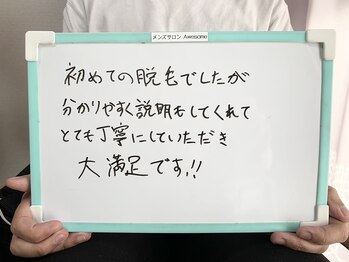 メンズサロン Awesome
初めての脱毛でしたが
分かりやすく説明もしてくれて
とても丁寧にしていただき
大満足です!!